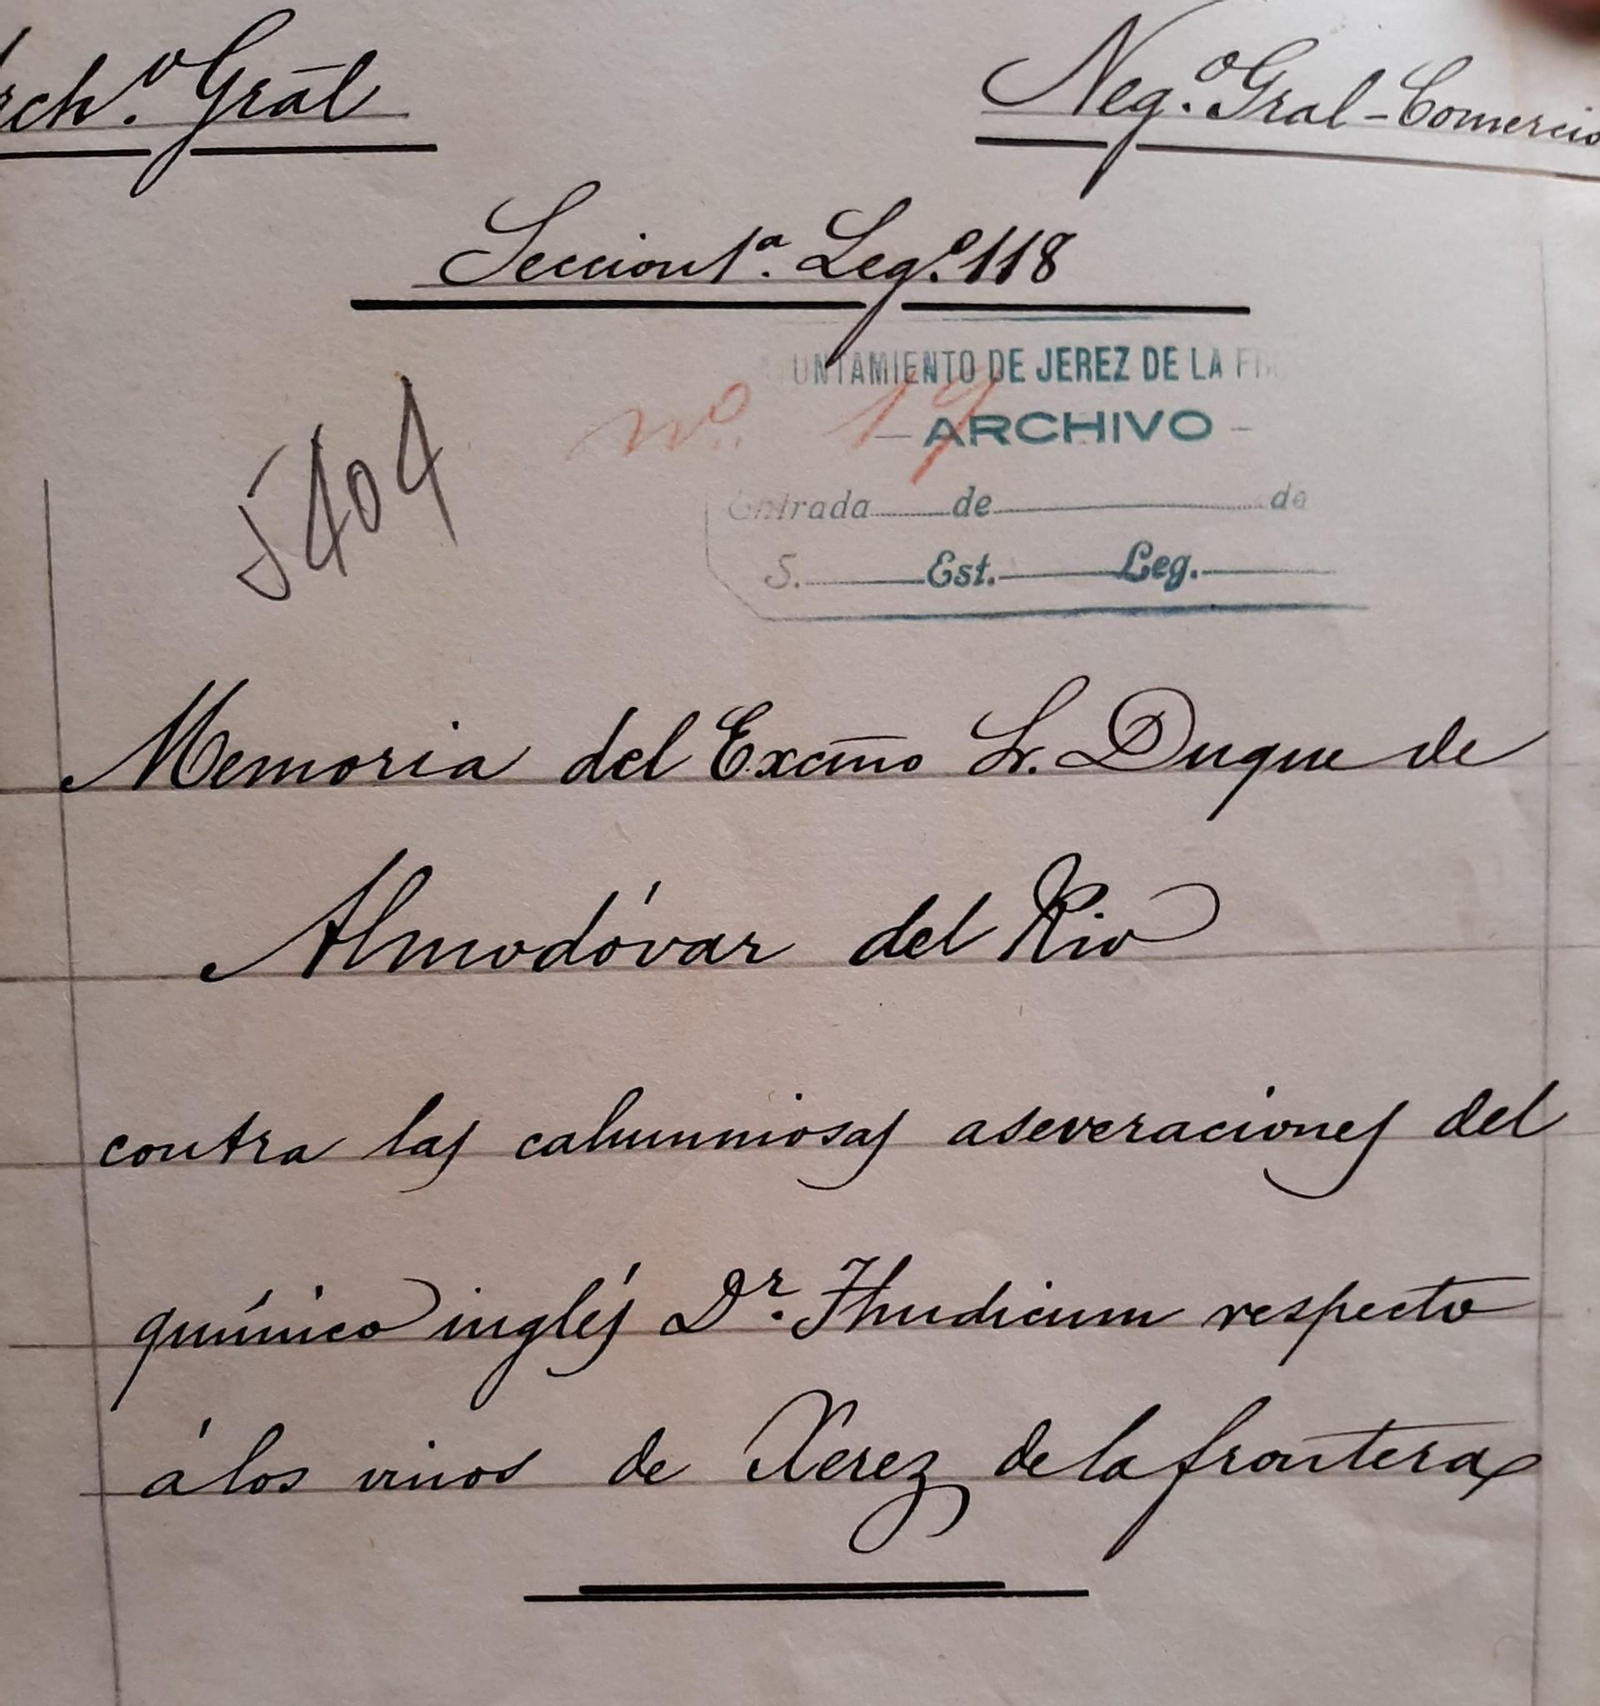 Arch.º Grāl
Neg.º Gral-Comercio
Seccion 1ª. Leg.º 118
AYUNTAMIENTO DE JEREZ DE LA FR
nº. 19
- ARCHIVO -
Entrada de de
S. Est. Leg.
5404
Memoria del Excm̄o Sr. Duque de
Almodóvar del Rio
contra las calumniosas aseveraciones del
químico inglés Dr. Thudicum respecto
á los vinos de Xerez de la frontera